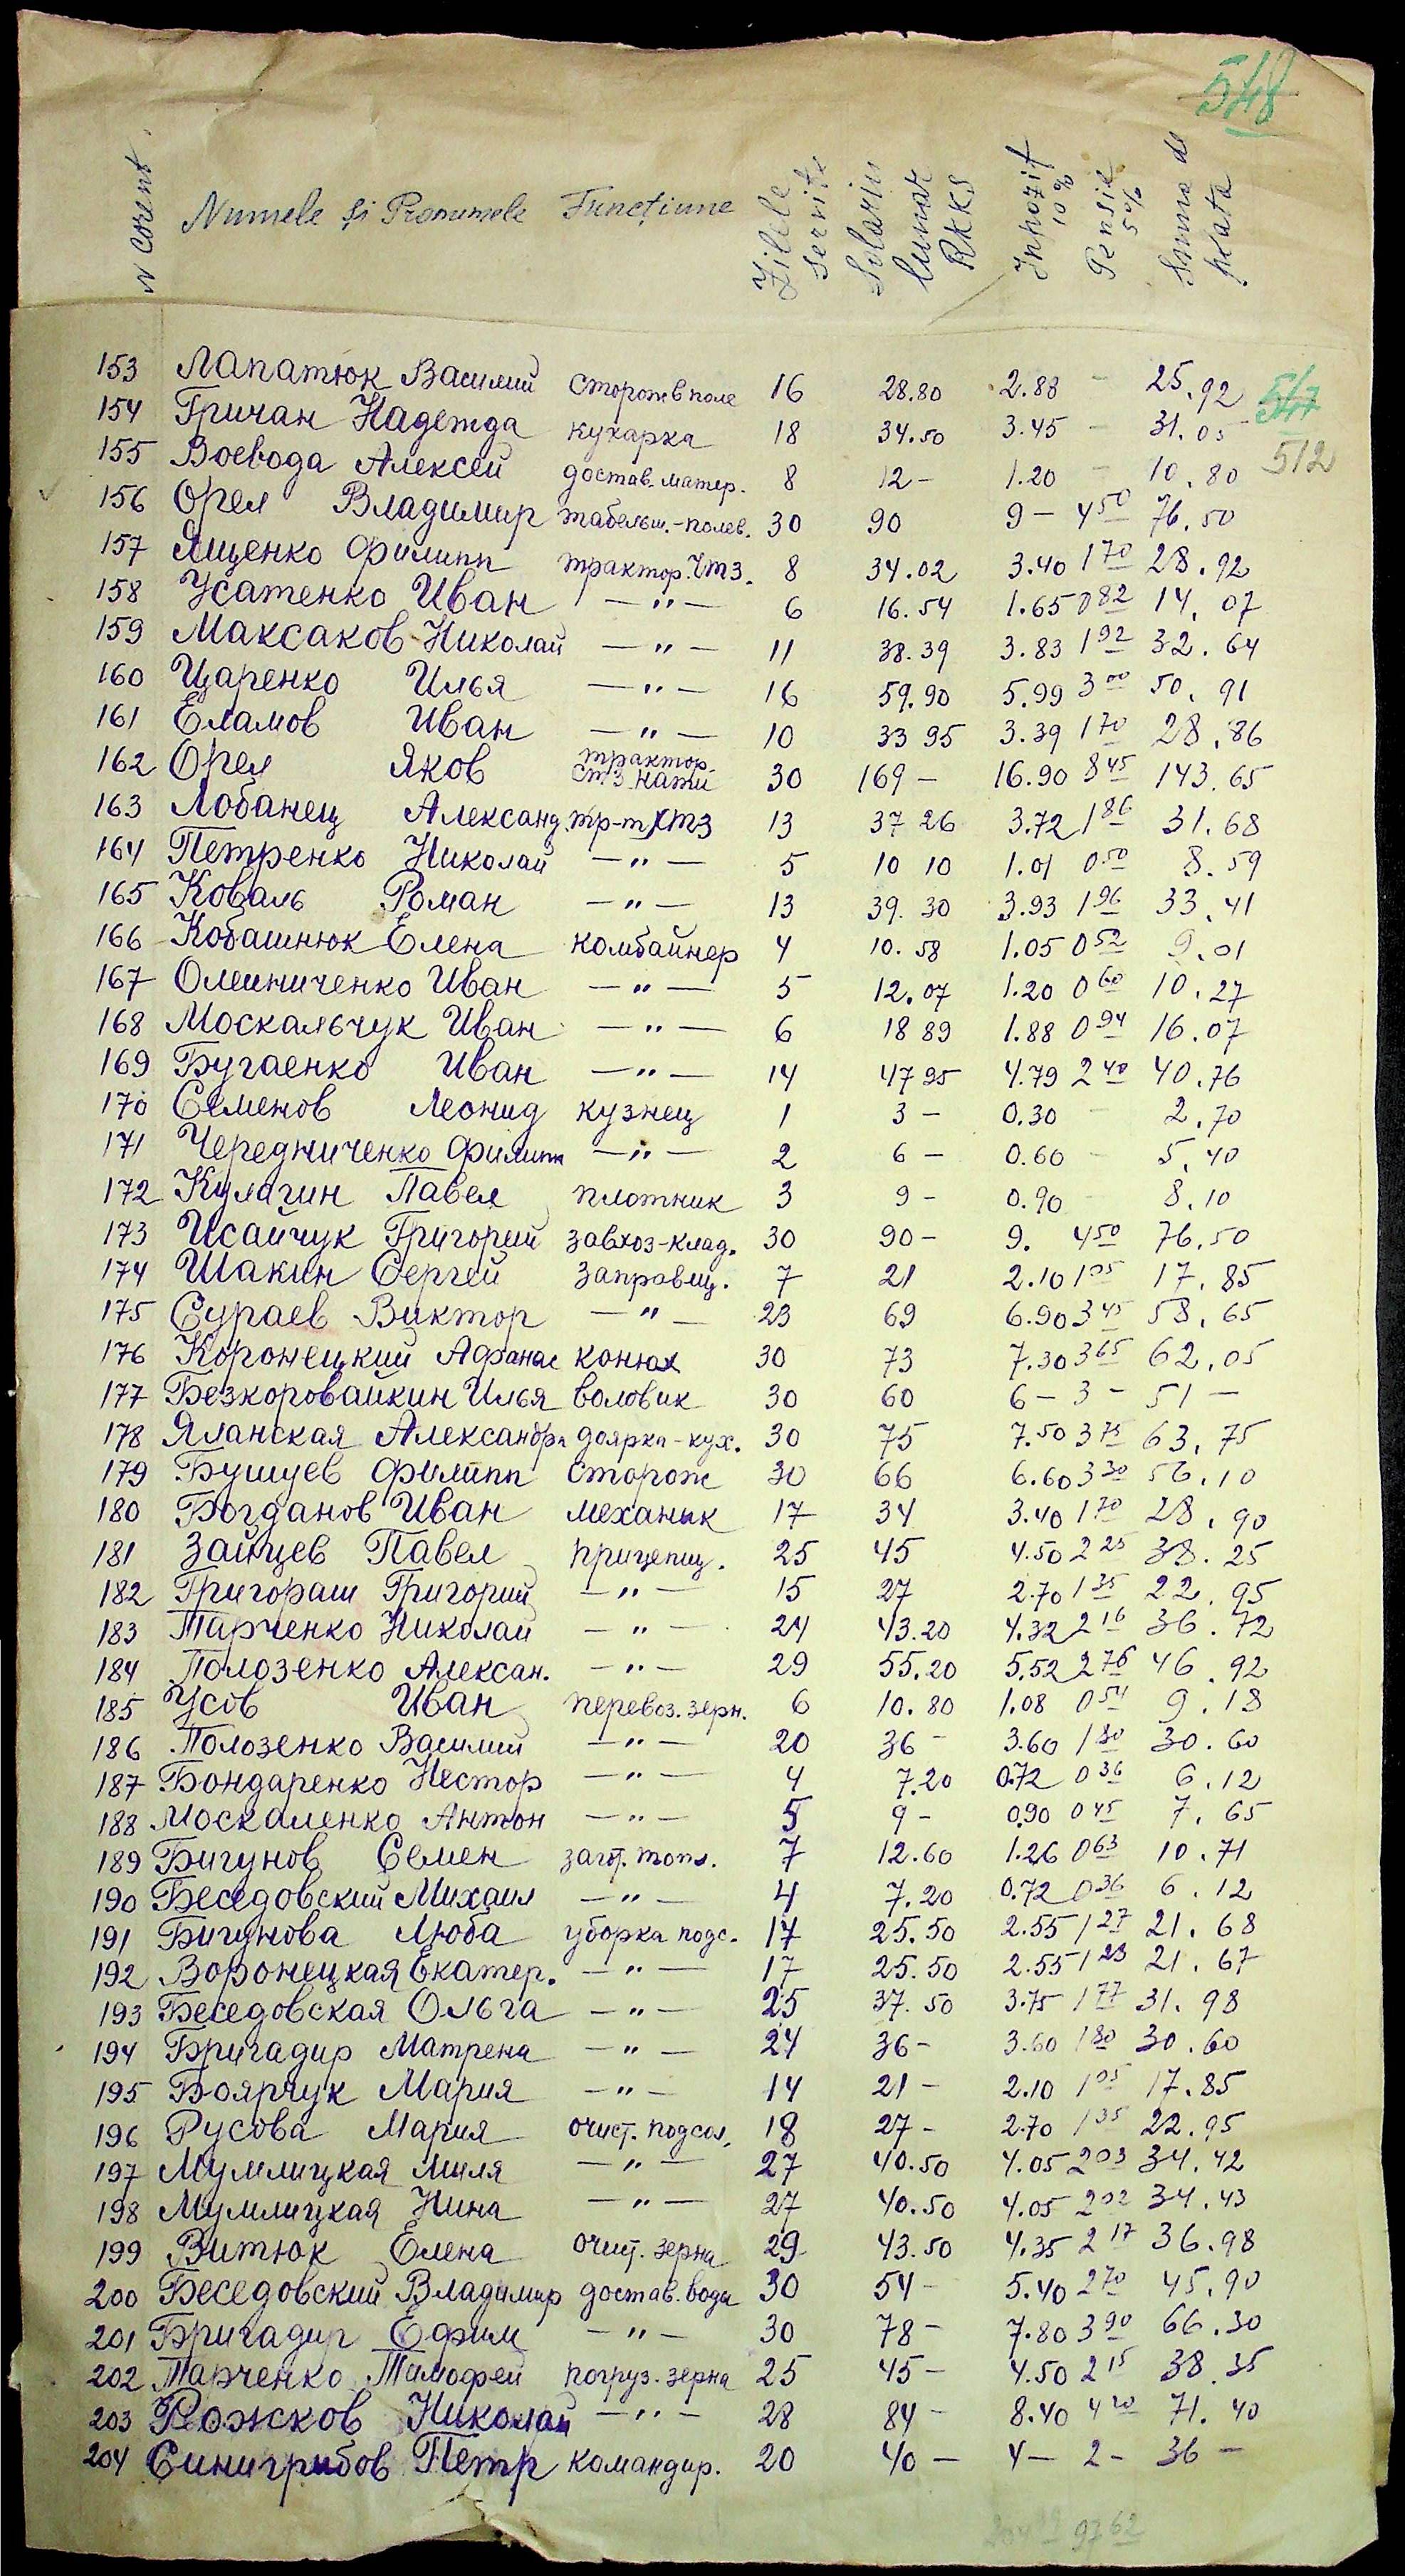 548
N Corent. Numele și Pronumele Funcțiune Zilele servite Salariu lunar RKKS Inpozit 10% Pensie 5% Suma de plata
153 Лапатюк Василий сторож в поле 16 28.80 2.88 - 25.92 547
154 Гричан Надежда кухарка 18 34.50 3.45 - 31.05
155 Воевода Алексей достав. матер. 8 12 - 1.20 - 10.80 512
156 Орел Владимир табельщ.-полев. 30 90 9 - 4 50 76.50
157 Ященко Филипп трактор. ЧТЗ. 8 34.02 3.40 1 70 28.92
158 Усатенко Иван - " - 6 16.54 1.65 0 82 14.07
159 Максаков Николай - " - 11 38.39 3.83 1 92 32.64
160 Царенко Илья - " - 16 59.90 5.99 3 00 50.91
161 Еламов Иван - " - 10 33 95 3.39 1 70 28.86
162 Орел Яков трактор. СТЗ нати 30 169 - 16.90 8 45 143.65
163 Лобанец Александ. тр-т ХТЗ 13 37 26 3.72 1 86 31.68
164 Петренко Николай - " - 5 10 10 1.01 0 50 8.59
165 Коваль Роман - " - 13 39.30 3.93 1 96 33.41
166 Кобашнюк Елена комбайнер 4 10.58 1.05 0 52 9.01
167 Олейниченко Иван - " - 5 12.07 1.20 0 60 10.27
168 Москальчук Иван - " - 6 18 89 1.88 0 94 16.07
169 Бугаенко Иван - " - 14 47 95 4.79 2 40 40.76
170 Семенов Леонид кузнец 1 3 - 0.30 - 2.70
171 Чередниченко Филипп - " - 2 6 - 0.60 - 5.40
172 Кулагин Павел плотник 3 9 - 0.90 - 8.10
173 Исайчук Григорий завхоз-клад. 30 90 - 9. 4 50 76.50
174 Шакин Сергей заправщ. 7 21 2.10 1 05 17.85
175 Сураев Виктор - " - 23 69 6.90 3 45 58.65
176 Коронецкий Афанас конюх 30 73 7.30 3 65 62.05
177 Безкоровайкин Илья воловик 30 60 6 - 3 - 51 -
178 Яланская Александра доярка-кух. 30 75 7.50 3 75 63.75
179 Бушуев Филипп сторож 30 66 6.60 3 30 56.10
180 Богданов Иван механик 17 34 3.40 1 70 28.90
181 Зайцев Павел прицепщ. 25 45 4.50 2 25 38.25
182 Григораш Григорий - " - 15 27 2.70 1 35 22.95
183 Тарченко Николай - " - 24 43.20 4.32 2 16 36.72
184 Полозенко Алексан. - " - 29 55.20 5.52 2 76 46.92
185 Усов Иван перевоз. зерн. 6 10.80 1.08 0 54 9.18
186 Полозенко Василий - " - 20 36 - 3.60 1 80 30.60
187 Бондаренко Нестор - " - 4 7.20 0.72 0 36 6.12
188 Москаленко Антон - " - 5 9 - 0.90 0 45 7.65
189 Бигунов Семен загот. топл. 7 12.60 1.26 0 63 10.71
190 Беседовский Михаил - " - 4 7.20 0.72 0 36 6.12
191 Бигунова Люба уборка подс. 17 25.50 2.55 1 27 21.68
192 Воронецкая Екатер. - " - 17 25.50 2.55 1 28 21.67
193 Беседовская Ольга - " - 25 37.50 3.75 1 77 31.98
194 Бригадир Матрена - " - 24 36 - 3.60 1 80 30.60
195 Боярчук Мария - " - 14 21 - 2.10 1 05 17.85
196 Русова Мария очист. подсол. 18 27 - 2.70 1 35 22.95
197 Мумлицкая Миля - " - 27 40.50 4.05 2 03 34.42
198 Мумлицкая Нина - " - 27 40.50 4.05 2 02 34.43
199 Витюк Елена очист. зерна 29 43.50 4.35 2 17 36.98
200 Беседовский Владимир достав. воды 30 54 - 5.40 2 70 45.90
201 Бригадир Ефим - " - 30 78 - 7.80 3 90 66.30
202 Тарченко Тимофей погруз. зерна 25 45 - 4.50 2 15 38.35
203 Рожсков Николай - " - 28 84 - 8.40 4 20 71.40
204 Синигрибов Петр командир. 20 40 - 4 - 2 - 36 -
97 62